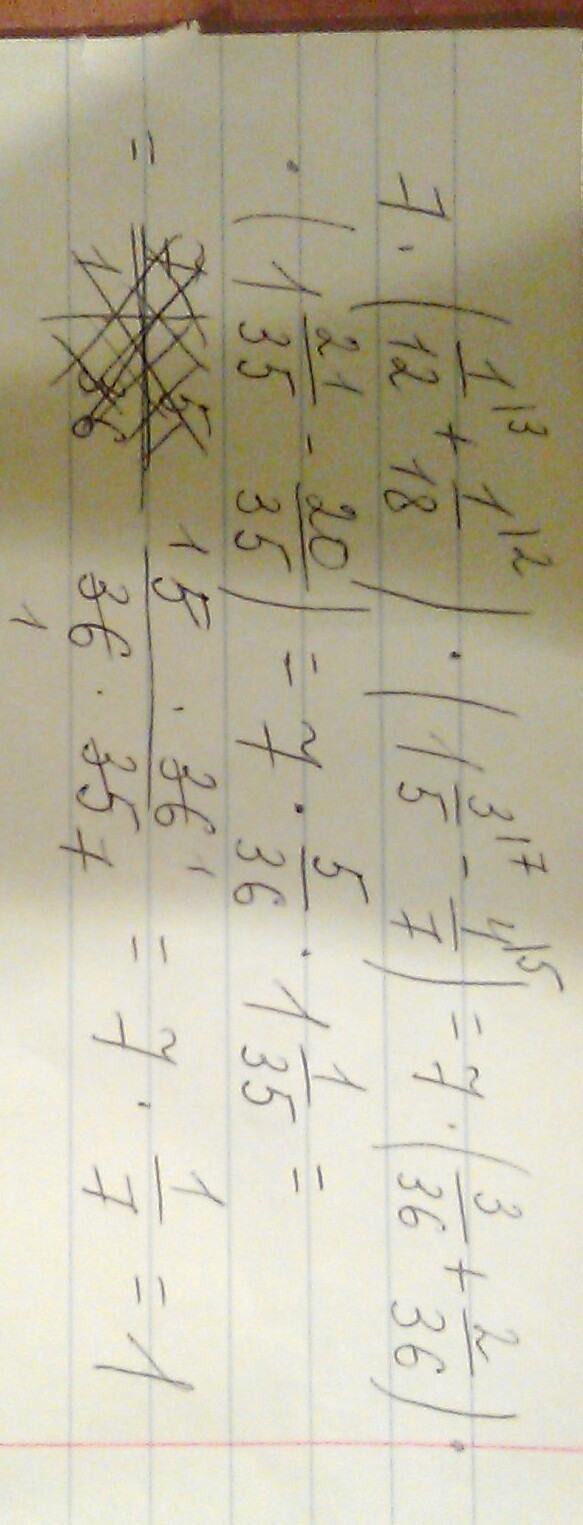 7 · (1/12 \3 + 1/18 \2) · (1 3/5 \7 - 4/7 \5) = 7 · (3/36 + 2/36) ·
· (1 21/35 - 20/35) = 7 · 5/36 · 1 1/35 =
= 1 5 · 36 1 / 36 1 · 35 7 = 7 · 1/7 = 1